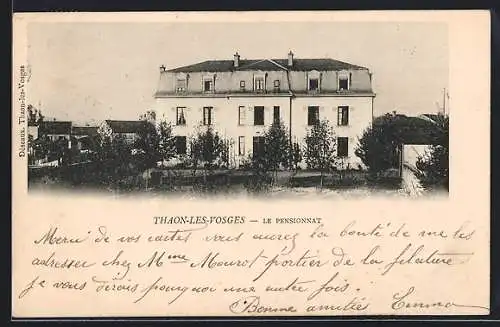 Déseaux. Thaon-les-Vosges
THAON-LES-VOSGES — LE PENSIONNAT
Merci de vos cartes vous aurez la bonté de me les
adresser chez Mme Maurot portier de la filature
je vous dirais pourquoi une autre fois.
Bonne amitiés Emma